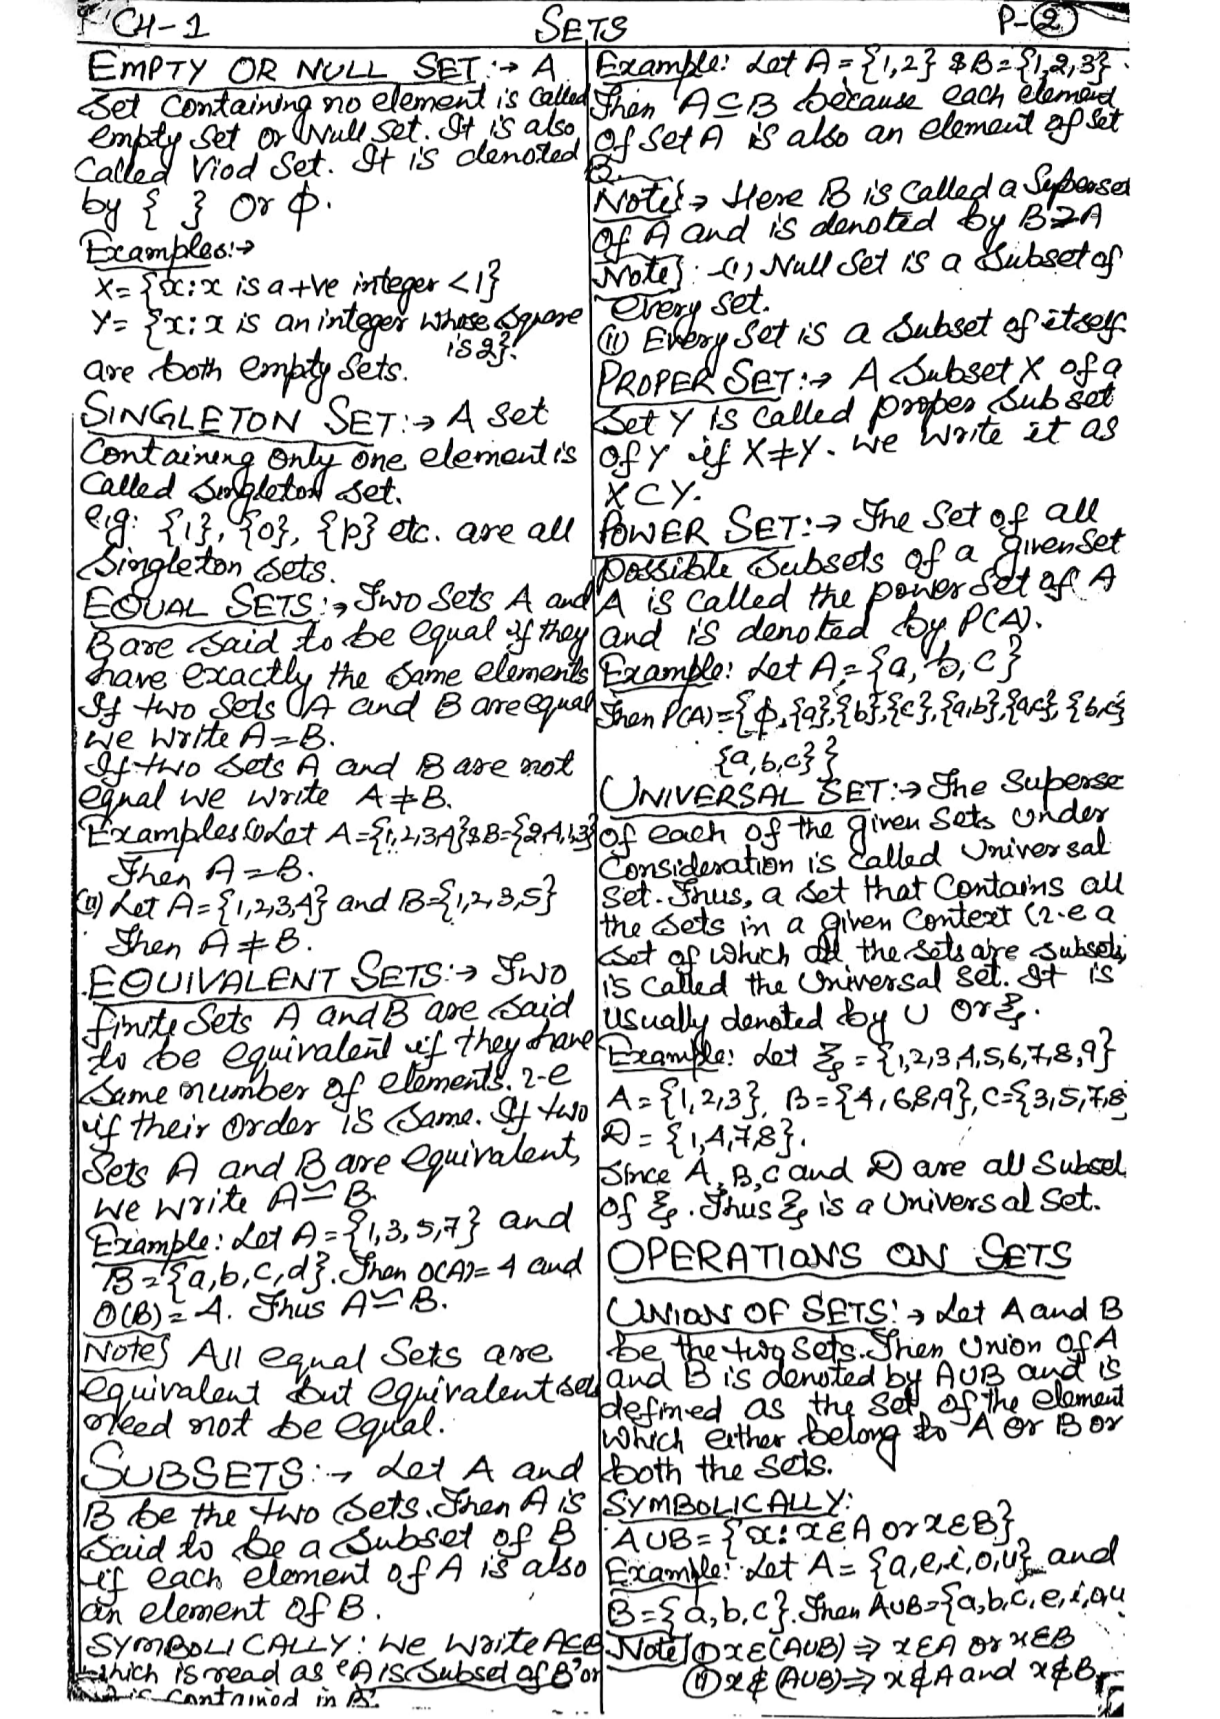 CH-1 SETS P-2
EMPTY OR NULL SET:→ A
Set Containing no element is called
empty set or Null set. It is also
Called Viod Set. It is denoted
by { } or ϕ.
Examples:→
X= {x:x is a +ve integer <1}
Y= {x:x is an integer whose square
is 2}.
are both empty sets.
SINGLETON SET:→ A set
Containing only one element is
Called Singleton set.
e.g: {1}, {0}, {p} etc. are all
Singleton sets.
EQUAL SETS:→ Two Sets A and
B are said to be equal if they
have exactly the same elements
If two Sets A and B are equal
we write A=B.
If two sets A and B are not
equal we write A≠B.
Examples (i) Let A={1,2,3,4} & B={2,4,1,3}
Then A=B.
(ii) Let A={1,2,3,4} and B={1,2,3,5}
Then A≠B.
EQUIVALENT SETS:→ Two
finite Sets A and B are said
to be equivalent if they have
same number of elements. i-e
if their order is same. If two
Sets A and B are equivalent,
we write A≃B.
Example: Let A={1,3,5,7} and
B={a,b,c,d}. Then O(A)=4 and
O(B)=4. Thus A≃B.
Note} All equal Sets are
equivalent but equivalent sets
need not be equal.
SUBSETS:→ Let A and
B be the two sets. Then A is
said to be a subset of B
if each element of A is also
an element of B.
SYMBOLICALLY: We write A⊆B
which is read as 'A is Subset of B' or
is contained in B'.
Example: Let A={1,2} & B={1,2,3}.
Then A⊆B because each element
of set A is also an element of set
B.
Note:→ Here B is called a Superset
of A and is denoted by B⊇A
Note}: (i) Null Set is a subset of
every set.
(ii) Every set is a subset of itself.
PROPER SET:→ A subset X of a
set Y is called proper subset
of Y if X≠Y. We write it as
X⊂Y.
POWER SET:→ The set of all
possible subsets of a given set
A is called the power set of A
and is denoted by P(A).
Example: Let A={a,b,c}
Then P(A)={ϕ,{a},{b},{c},{a,b},{a,c},{b,c}
{a,b,c}}
UNIVERSAL SET:→ The Superse
of each of the given sets under
Consideration is called Universal
Set. Thus, a set that contains all
the sets in a given context (i-e a
set of which all the sets are subsets,
is called the Universal set. It is
usually denoted by U or ξ.
Example: Let ξ={1,2,3,4,5,6,7,8,9}
A={1,2,3}, B={4,6,8,9}, C={3,5,7,8
D={1,4,7,8}.
Since A, B, C and D are all Subset
of ξ. Thus ξ is a Universal Set.
OPERATIONS ON SETS
UNION OF SETS:→ Let A and B
be the two sets. Then Union of A
and B is denoted by A∪B and is
defined as the set of the element
which either belong to A or B or
both the sets.
SYMBOLICALLY:
A∪B={x:x∈A or x∈B}
Example: Let A={a,e,i,o,u} and
B={a,b,c}. Then A∪B={a,b,c,e,i,o,u
Note} (i) x∈(A∪B)⇒ x∈A or x∈B
(ii) x∉(A∪B)⇒ x∉A and x∉B